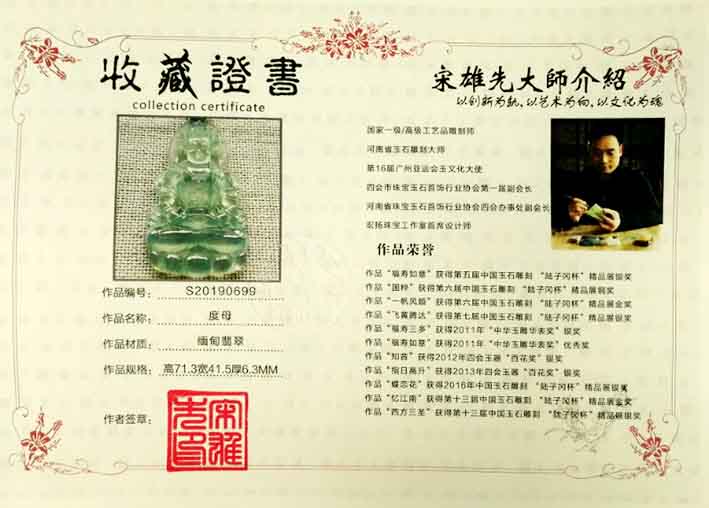 收藏證書
collection certificate
作品编号: S20190699
作品名称: 度母
作品材质: 缅甸翡翠
作品规格: 高71.3宽41.5厚6.3MM
作者签章:
宋雄先大師介紹
以创新为轨,以艺术为向,以文化为魂
国家一级/高级工艺品雕刻师
河南省玉石雕刻大师
第16届广州亚运会玉文化大使
四会市珠宝玉石首饰行业协会第一届副会长
河南省珠宝玉石首饰行业协会四会办事处副会长
宏扬珠宝工作室首席设计师
作品荣誉
作品“福寿如意”获得第五届中国玉石雕刻 “陆子冈杯”精品展银奖
作品“国粹”获得第六届中国玉石雕刻 “陆子冈杯”精品展铜奖
作品“一帆风顺”获得第六届中国玉石雕刻 “陆子冈杯”精品展金奖
作品“飞黄腾达”获得第七届中国玉石雕刻 “陆子冈杯”精品展银奖
作品“福寿三多”获得2011年“中华玉雕华表奖”银奖
作品“福寿如意”获得2011年“中华玉雕华表奖”优秀奖
作品“知音”获得2012年四会玉器“百花奖”银奖
作品“指日高升”获得2013年四会玉器“百花奖”银奖
作品“蝶恋花”获得2016年中国玉石雕刻“陆子冈杯”精品展银奖
作品“忆江南”获得第十三届中国玉石雕刻 “陆子冈杯”精品展金奖
作品“西方三圣”获得第十三届中国玉石雕刻 “陆子冈杯”精品展银奖